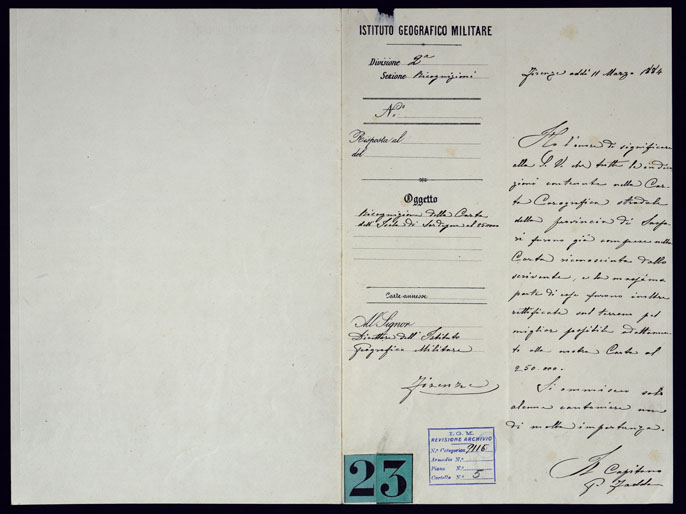 ISTITUTO GEOGRAFICO MILITARE
Divisione 2a
Sezione Ricognizioni
N.o
Risposta al
del
Oggetto
Ricognizione della Carta
dell'Isola di Sardegna al
Carte annesse
Al Signor
Direttore dell'Istituto
Geografico Militare
Firenze
Firenze addì 11 Marzo 1884
Ho l'onore di significare
alla S. V. che tutte le indica
zioni contenute nella Car
ta Corografica stradale
della provincia di Sassa
ri furono già comprese nella
Carta riconosciuta dallo
scrivente, e la massima
parte di esse furono inoltre
rettificate sul terreno pel
miglior possibile adattamen
to alla nostra Carta al
250.000.
Si ommisero solo
alcune cantoniere non
di molta importanza.
Il Capitano
I. G. M.
REVISIONE ARCHIVIO
N.o Categorico
Armadio N.o
Piano N.o
Cartella N.o 5
23